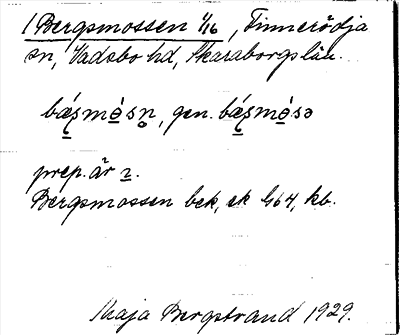 1 Bergsmossen 1/16, Finnerödja
sn, Vadsbo hd, Skaraborgs län.
bæ̨smòsn̥, gen. bæ̨smòsə
prep. är
Bergsmossen bek, ek 464, kb.
Maja Bergstrand 1929.